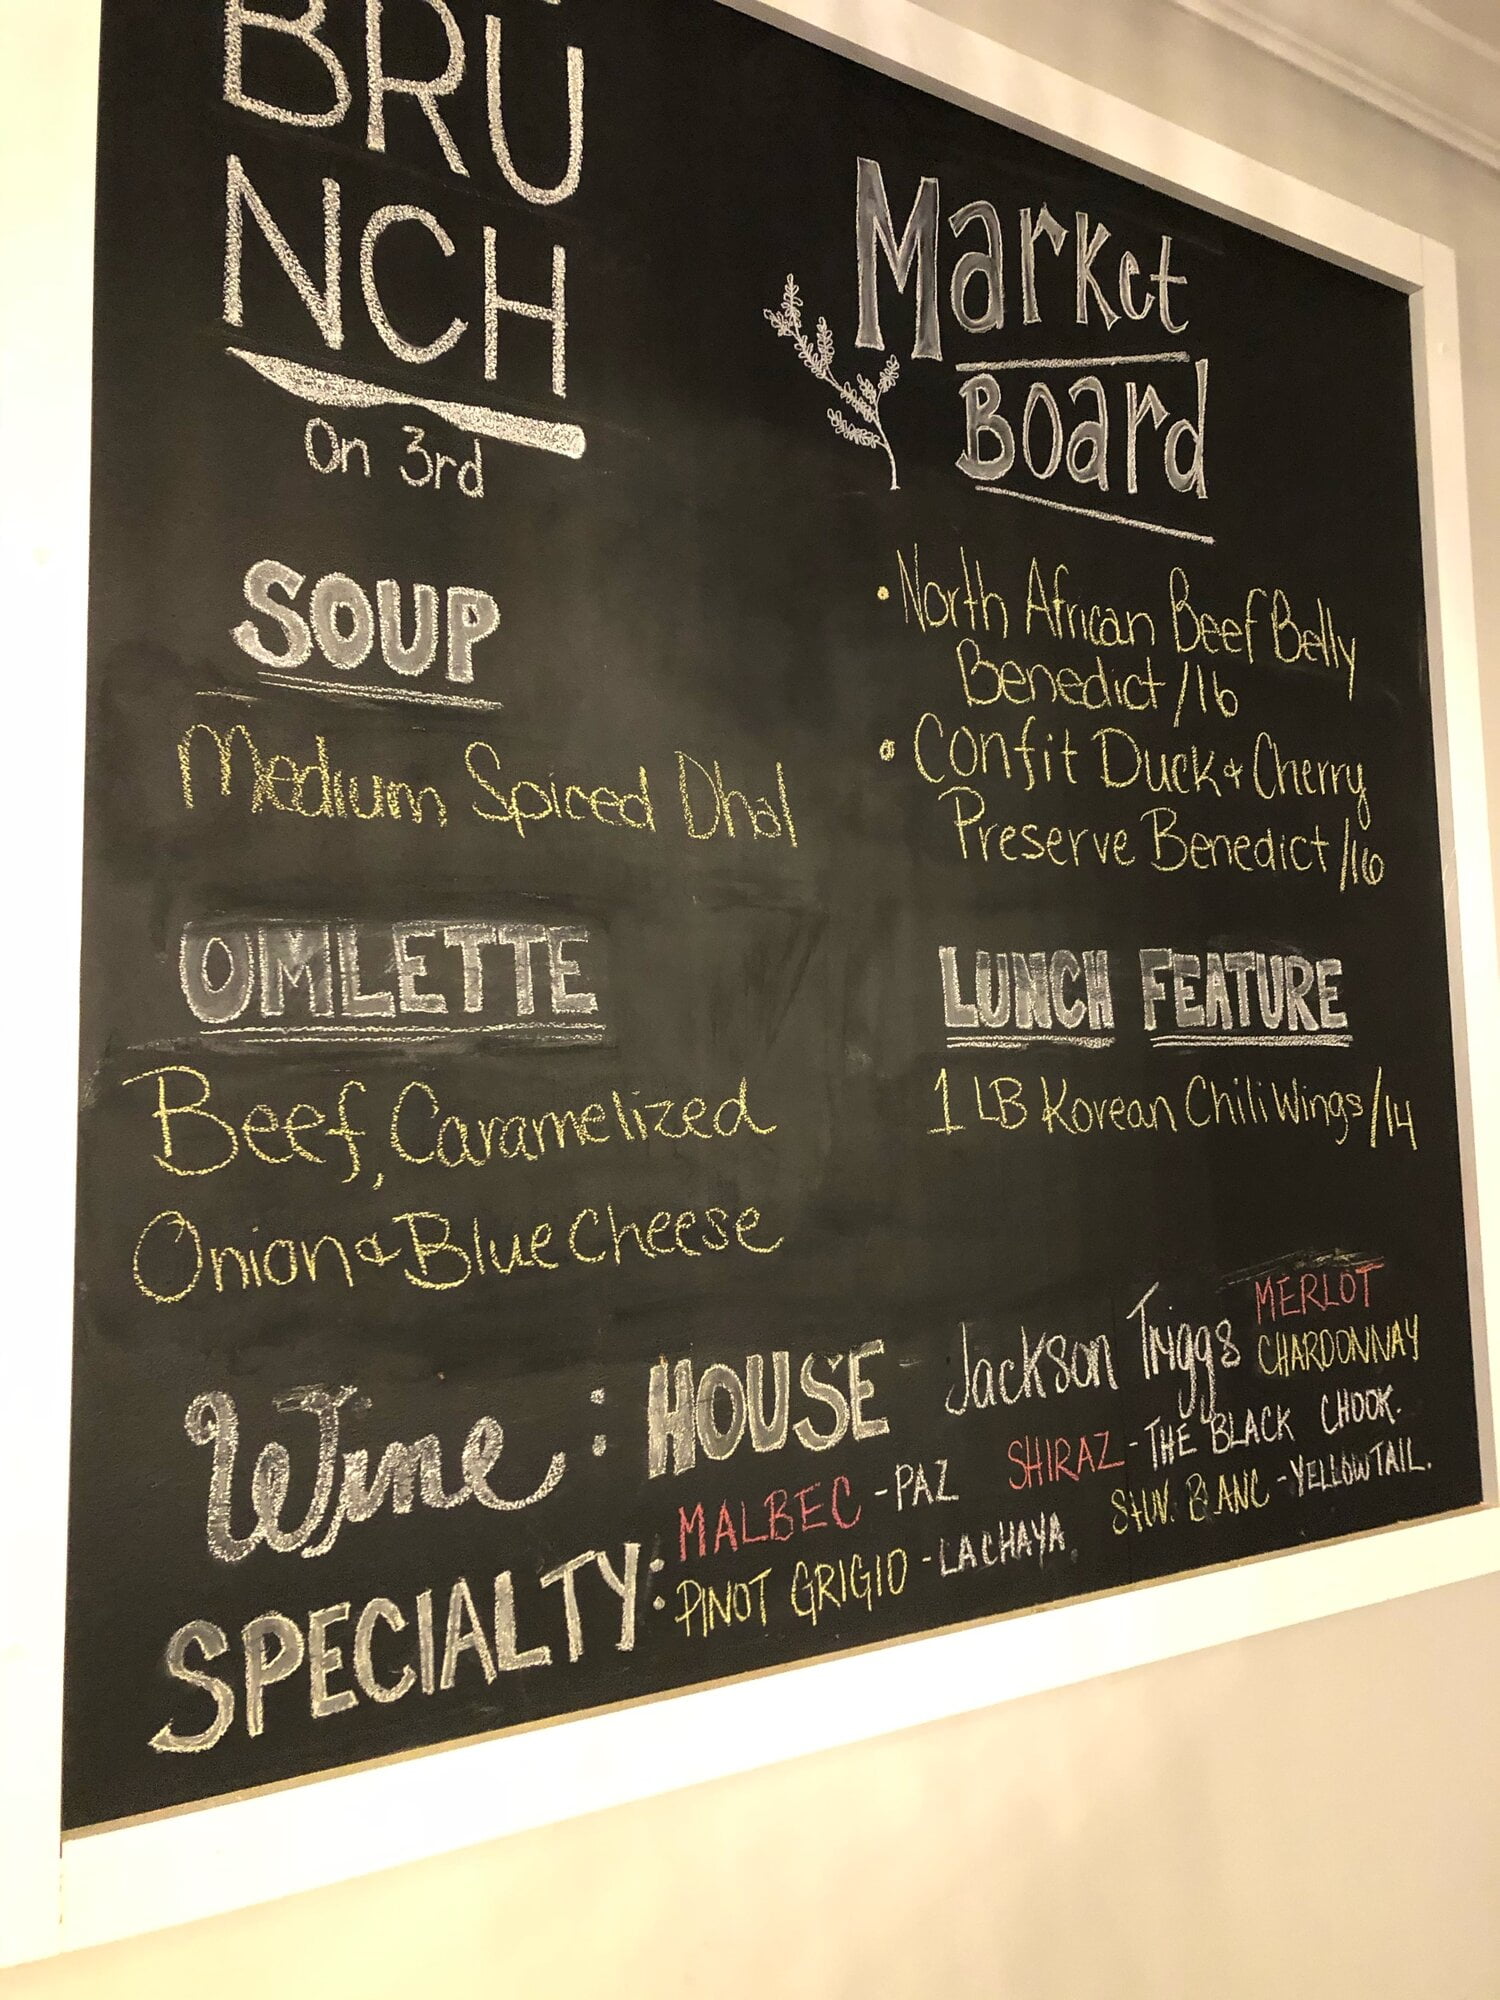 BRU
NCH
On 3rd
SOUP
Medium Spiced Dhal
OMLETTE
Beef, Caramelized
Onion & Blue Cheese
Market
Board
• North African Beef Belly
Benedict /16
• Confit Duck & Cherry
Preserve Benedict /16
LUNCH FEATURE
1 LB Korean Chili Wings /14
Wine : HOUSE - Jackson Triggs MERLOT
CHARDONNAY
SPECIALTY: MALBEC - PAZ SHIRAZ - THE BLACK CHOOK.
PINOT GRIGIO - LA CHAYA. BLANC - YELLOWTAIL.